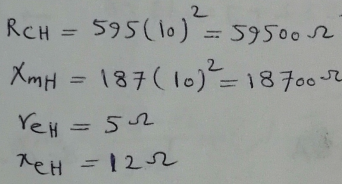 R_CH = 595(10)² = 59500 Ω
X_mH = 187(10)² = 18700 Ω
r_eH = 5 Ω
x_eH = 12 Ω